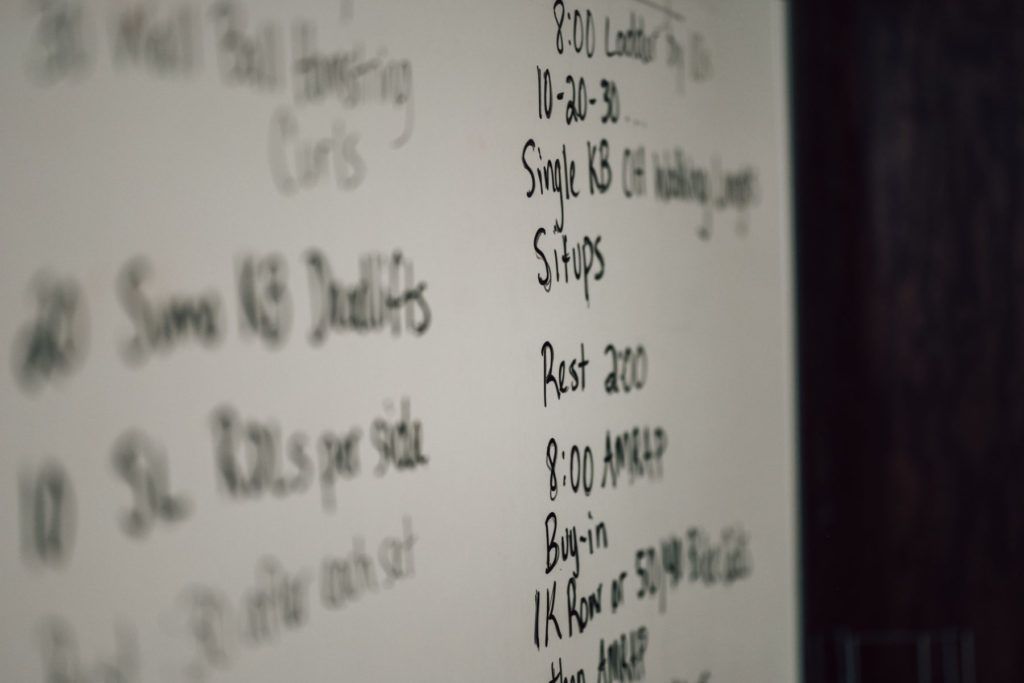 30 Wall Ball Hamstring
Curls
20 Sumo KB Deadlifts
10 SL RDLs per side
Rest :30 after each set
8:00 Ladder by 10s
10-20-30....
Single KB OH Walking Lunges
Situps
Rest 2:00
8:00 AMRAP
Buy-in
1K Row or 50/40 Bike Cals
then AMRAP